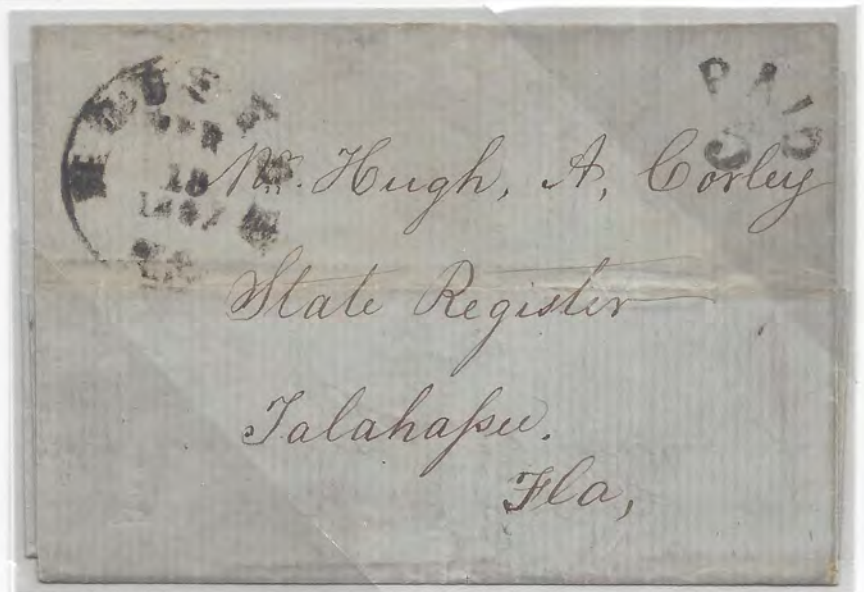 PAID
Mr. Hugh, A, Corley
State Register
Talahaſsee.
Fla,